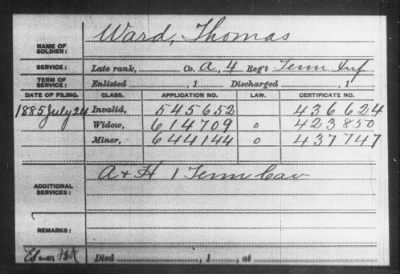 Ward, Thomas
NAME OF SOLDIER:
SERVICE: Late rank, Co. A, 4 Reg't Tenn Inf
TERM OF SERVICE: Enlisted , 1 Discharged , 1
DATE OF FILING. CLASS. APPLICATION NO. LAW. CERTIFICATE NO.
1885 July 24 Invalid, 545652 436624
Widow, 614709 o 423850
Minor, 644144 o 437747
A & H 1 Tenn Cav
ADDITIONAL SERVICES:
REMARKS:
Died , 1 , at